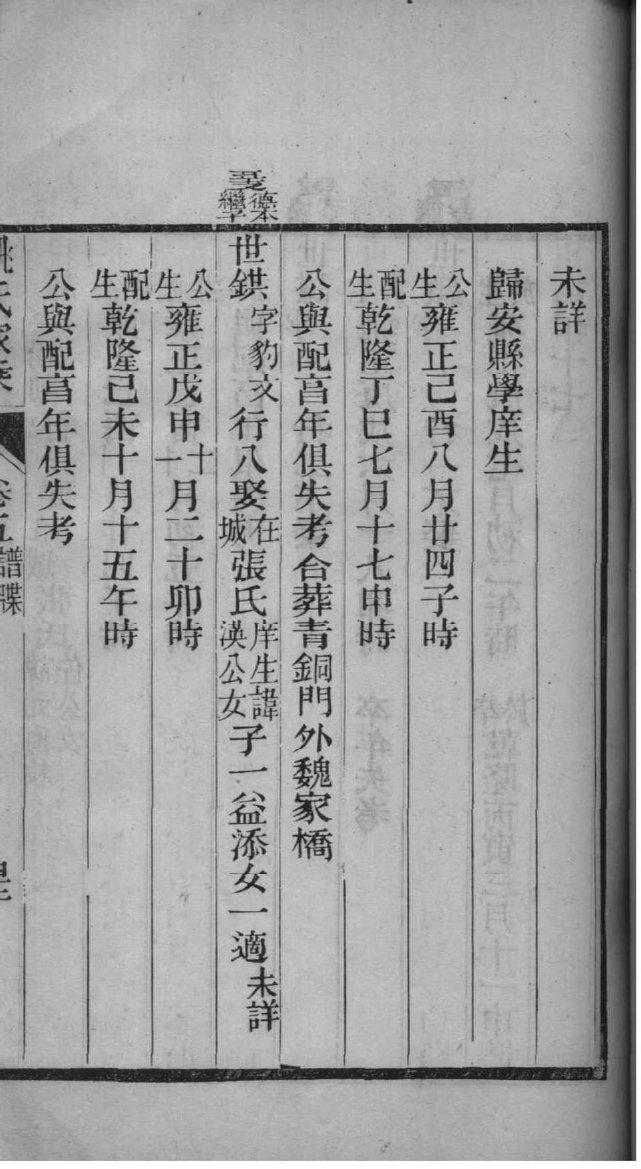 未詳
歸安縣學庠生
公生雍正己酉八月廿四子時
配生乾隆丁巳七月十七申時
公與配享年俱失考合葬青銅門外魏家橋
世鉷字豹文行八娶在城張氏庠生諱漢公女子一益添女一適未詳
公生雍正戊申十一月二十卯時
配生乾隆己未十月十五午時
公與配享年俱失考
姚氏家乘 卷五譜牒